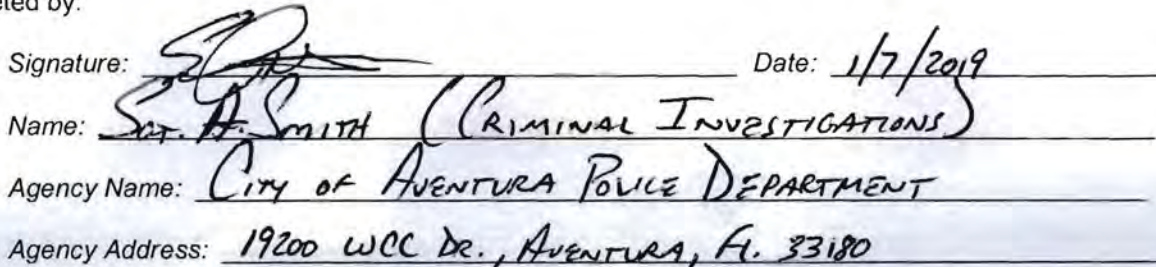 eted by:
Signature: Date: 1/7/2019
Name: Sgt. A. Smith (Criminal Investigations)
Agency Name: City of Aventura Police Department
Agency Address: 19200 WCC Dr., Aventura, Fl. 33180